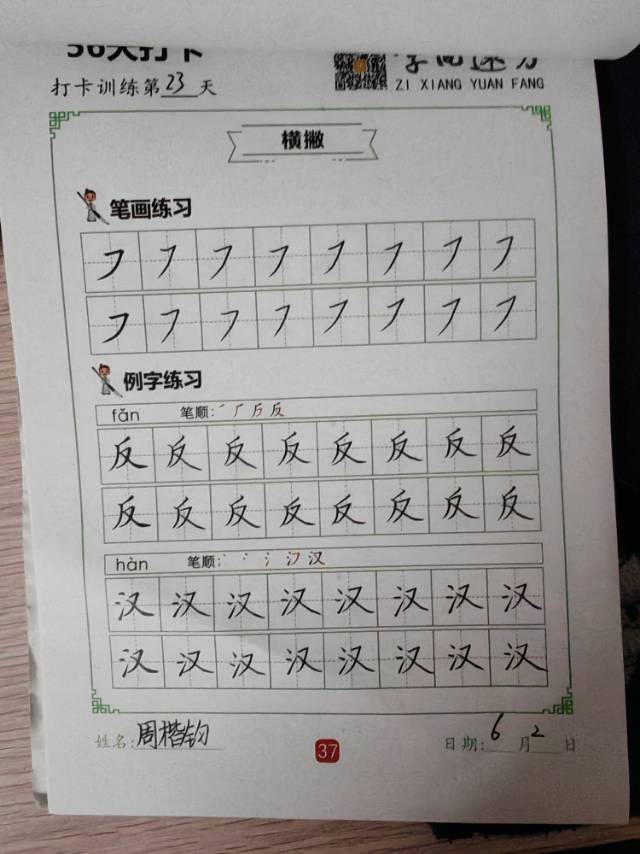 56天打卡
打卡训练第23天
字向速方
ZI XIANG YUAN FANG
横撇
笔画练习
㇇ ㇇ ㇇ ㇇ ㇇ ㇇ ㇇ ㇇
㇇ ㇇ ㇇ ㇇ ㇇ ㇇ ㇇ ㇇
例字练习
fǎn 笔顺: ㇒ 厂 𠂆 反
反 反 反 反 反 反 反 反
反 反 反 反 反 反 反 反
hàn 笔顺: 丶 冫 氵 汉
汉 汉 汉 汉 汉 汉 汉 汉
汉 汉 汉 汉 汉 汉 汉 汉
姓名:周楷钧
37
日期: 6月2日